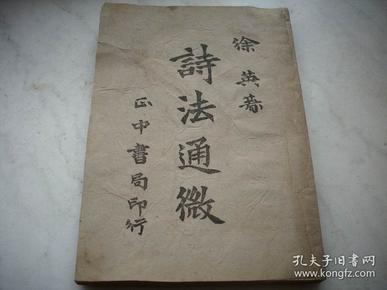 徐英著
詩法通微
正中書局印行
孔夫子旧書网
www.kongfz.com